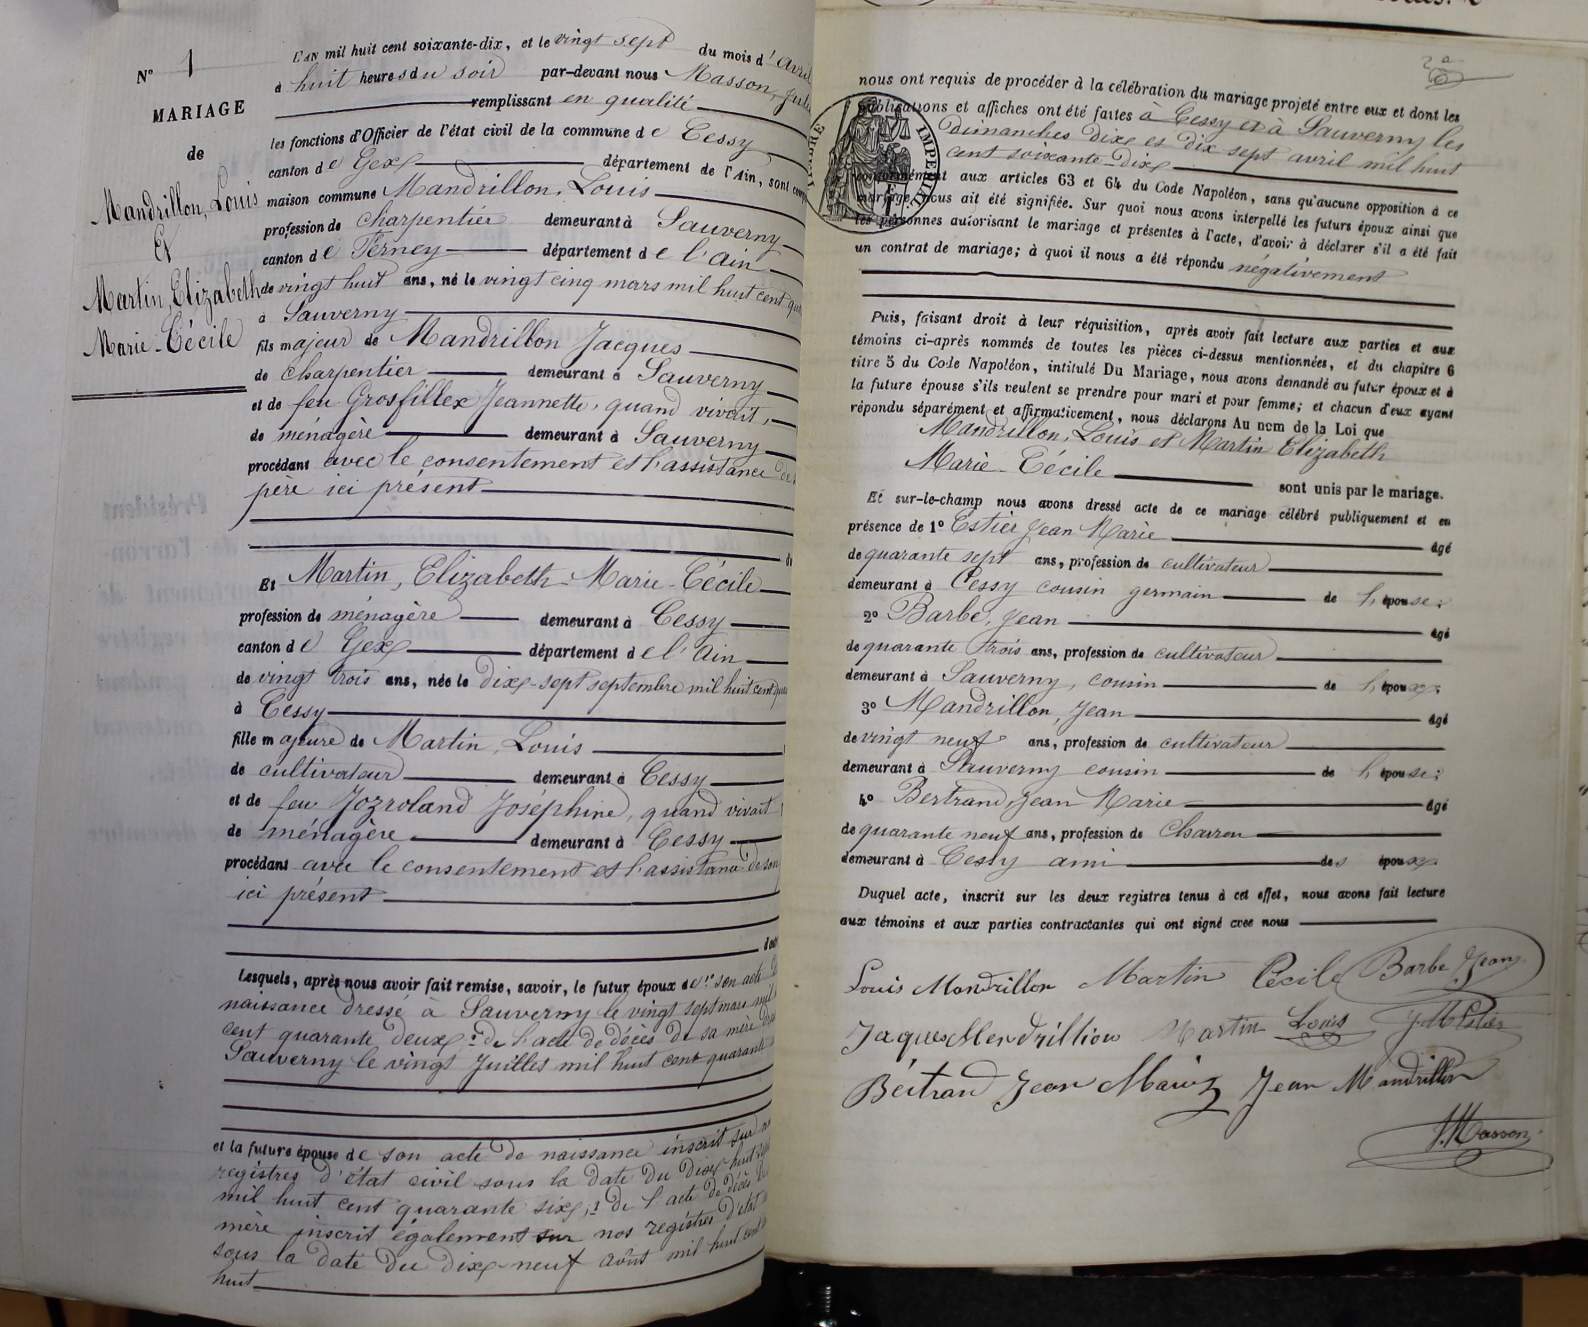 N° 1
MARIAGE
de
Mandrillon, Louis
Et
Martin, Elizabeth
Marie-Cécile
L'an mil huit cent soixante-dix, et le vingt sept du mois d'Avril
à huit heures du soir par-devant nous Masson,
remplissant en qualité
les fonctions d'Officier de l'état civil de la commune de Cessy
canton de Gex département de l'Ain, sont
maison commune Mandrillon, Louis
profession de charpentier demeurant à Sauverny
canton de Ferney département de l'Ain
de vingt huit ans, né le vingt cinq mars mil huit cent
à Sauverny
fils majeur de Mandrillon Jacques
de charpentier demeurant à Sauverny
et de feu Grosfillex Jeannette, quand vivait,
de ménagère demeurant à Sauverny
procédant avec le consentement et l'assistance
père ici présent
Et Martin, Elizabeth-Marie-Cécile
profession de ménagère demeurant à Cessy
canton de Gex département de l'Ain
de vingt trois ans, née le dix-sept septembre mil huit cent
à Cessy
fille majeure de Martin, Louis
de cultivateur demeurant à Cessy
et de feu Jozroland Joséphine, quand vivait
de ménagère demeurant à Cessy
procédant avec le consentement et l'assistance de son
ici présent
Lesquels, après nous avoir fait remise, savoir, le futur époux de 1° son acte
naissance dressé à Sauverny le vingt sept mars mil
cent quarante deux; 2° de l'acte de décès de sa mère
Sauverny le vingt Juillet mil huit cent quarante
et la future épouse de son acte de naissance inscrit sur
registres d'état civil sous la date du dix-huit
mil huit cent quarante six, 2° de l'acte de décès
mère inscrit également sur nos registres d'état
sous la date du dix-neuf août mil huit cent
huit
nous ont requis de procéder à la célébration du mariage projeté entre eux et dont les
publications et affiches ont été faites à Cessy et à Sauverny les
dimanches dix et dix sept avril mil huit
cent soixante-dix
TIMBRE IMPERIAL
conformément aux articles 63 et 64 du Code Napoléon, sans qu'aucune opposition à ce
mariage nous ait été signifiée. Sur quoi nous avons interpellé les futurs époux ainsi que
les personnes autorisant le mariage et présentes à l'acte, d'avoir à déclarer s'il a été fait
un contrat de mariage; à quoi il nous a été répondu négativement
Puis, faisant droit à leur réquisition, après avoir fait lecture aux parties et aux
témoins ci-après nommés de toutes les pièces ci-dessus mentionnées, et du chapitre 6
titre 5 du Code Napoléon, intitulé Du Mariage, nous avons demandé au futur époux et à
la future épouse s'ils veulent se prendre pour mari et pour femme; et chacun d'eux ayant
répondu séparément et affirmativement, nous déclarons Au nom de la Loi que
Mandrillon, Louis et Martin Elizabeth
Marie-Cécile sont unis par le mariage.
Et sur-le-champ nous avons dressé acte de ce mariage célébré publiquement et en
présence de 1° Estier Jean Marie âgé
de quarante sept ans, profession de cultivateur
demeurant à Cessy cousin germain de l'épouse;
2° Barbe, Jean âgé
de quarante trois ans, profession de cultivateur
demeurant à Sauverny, cousin de l'époux;
3° Mandrillon, Jean âgé
de vingt neuf ans, profession de cultivateur
demeurant à Sauverny cousin de l'épouse;
4° Bertrand, Jean Marie âgé
de quarante neuf ans, profession de Charron
demeurant à Cessy ami des époux
Duquel acte, inscrit sur les deux registres tenus à cet effet, nous avons fait lecture
aux témoins et aux parties contractantes qui ont signé avec nous
Louis Mandrillon Martin Cécile Barbe Jean
Jaques Mendrillion Martin Louis J M Estier
Bertrand Jean Marie Jean Mandrillon
J. Masson